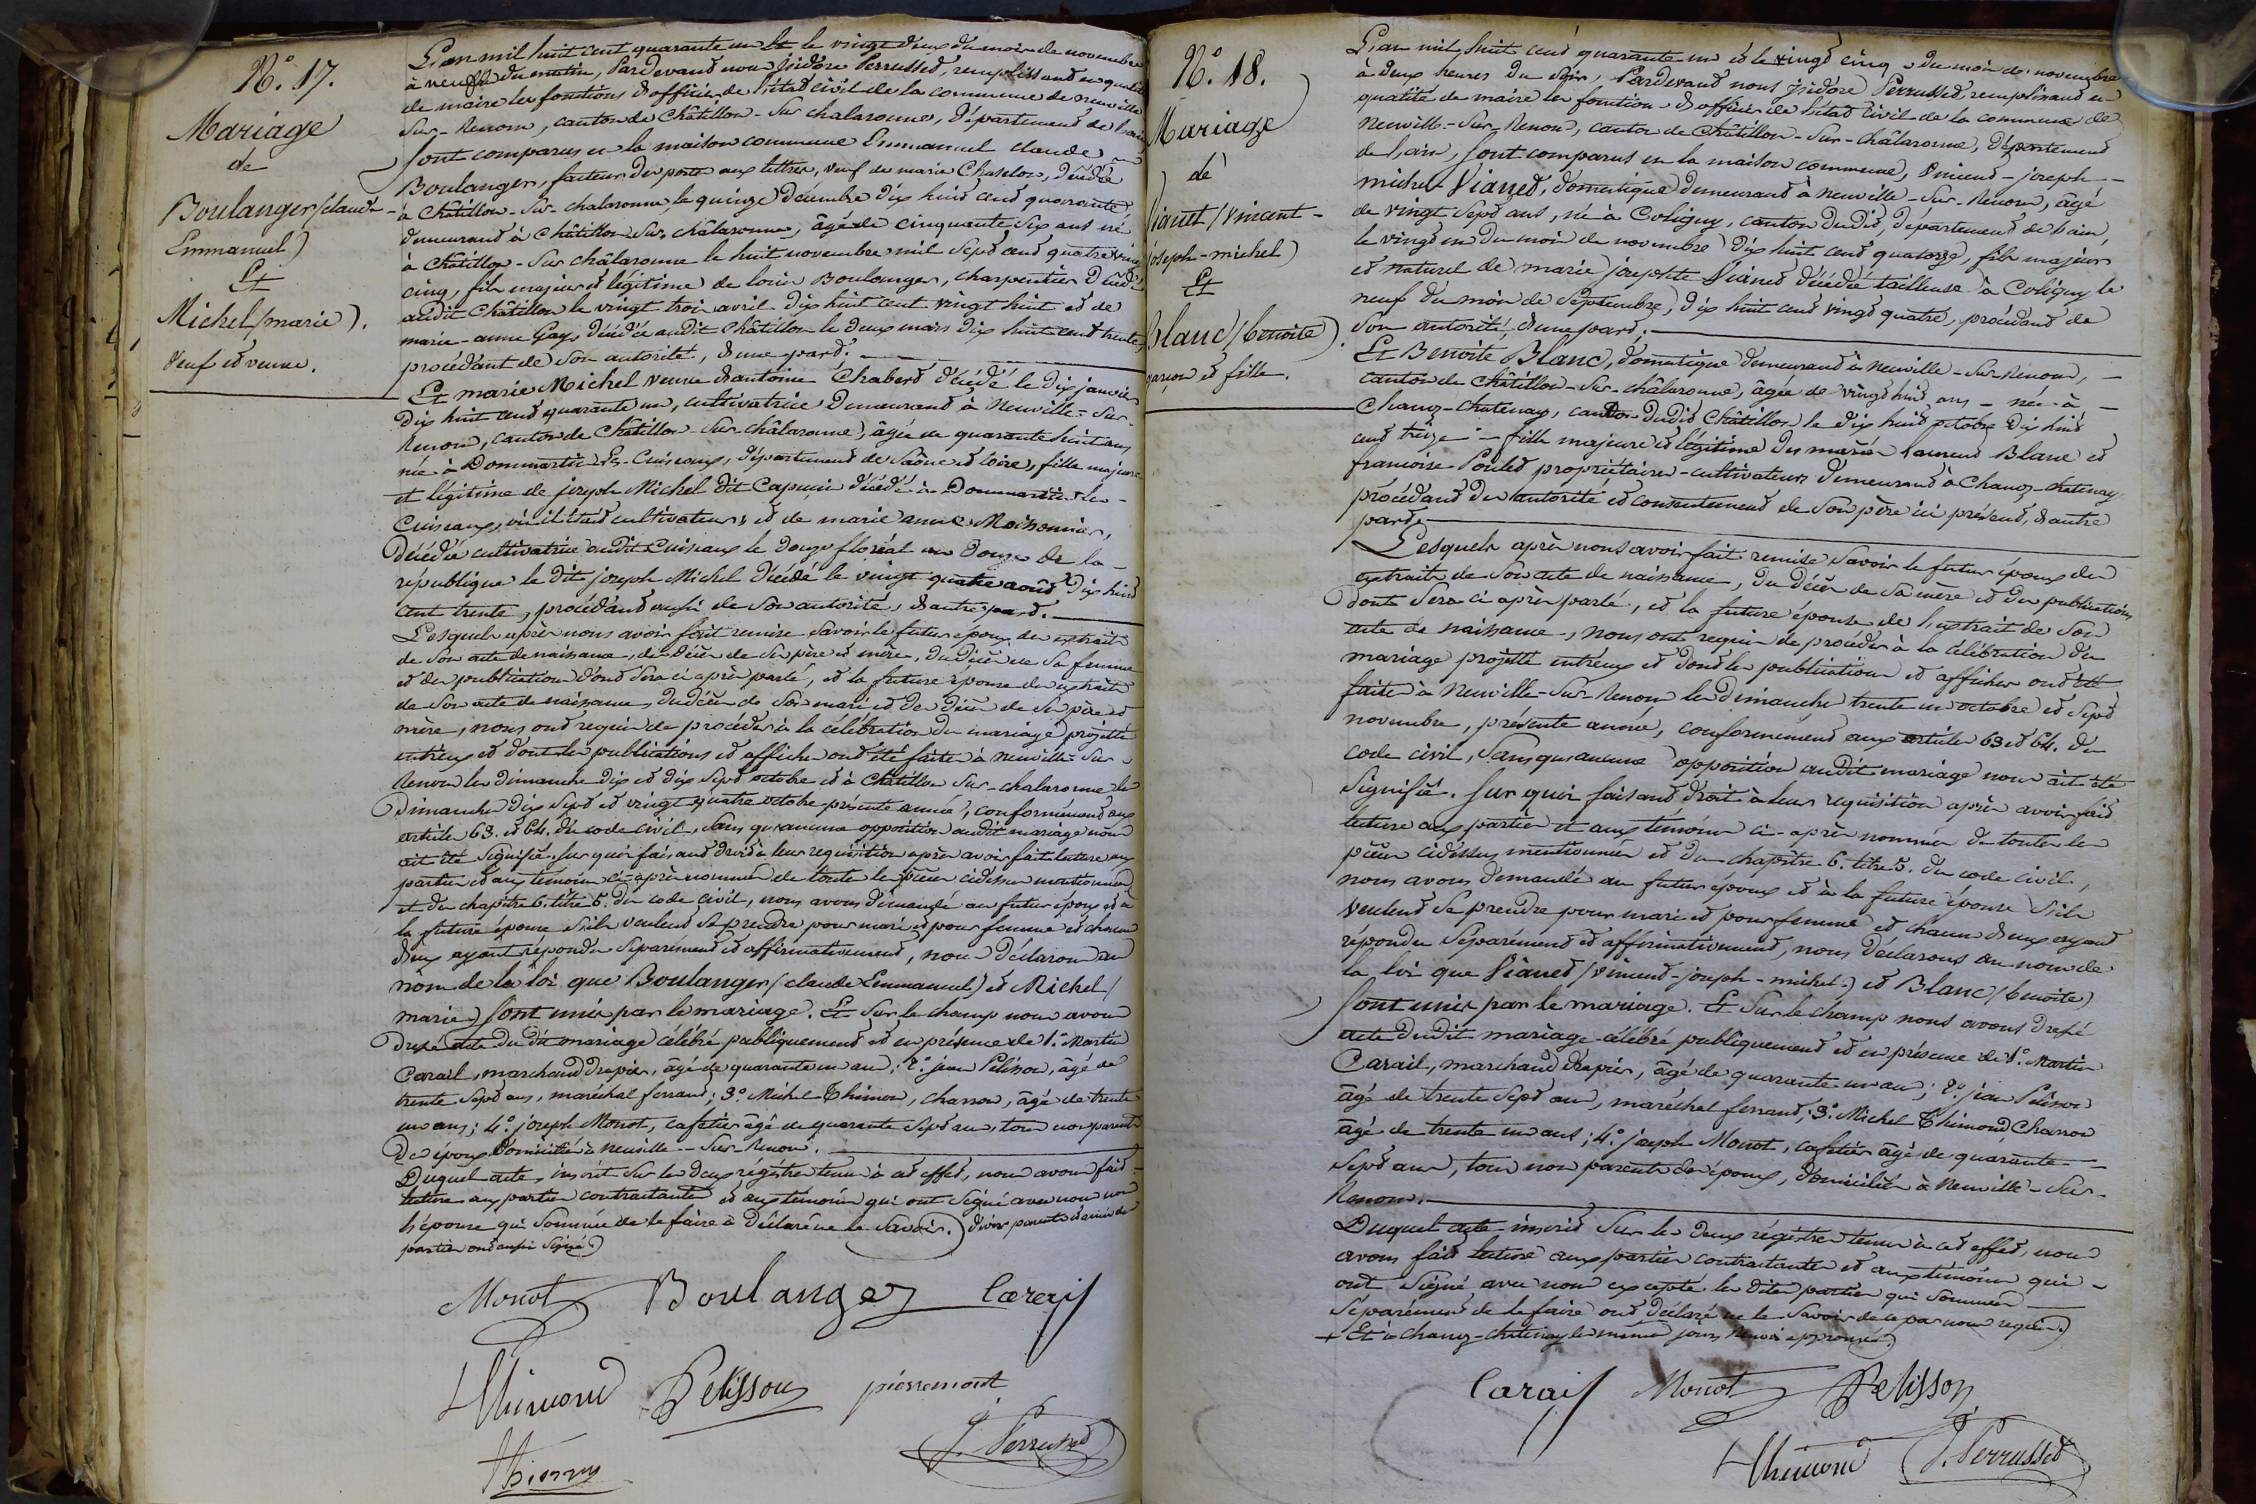 N.° 17.
Mariage
de
Boulanger (claude-
Emmanuel)
Et
Michel (marie).
veuf et veuve.
L'an mil huit cent quarante un Et le vingt deux du mois de novembre
à neuf du matin, Pardevant nous Isidore Perrusset, remplissant en qualité
de maire les fonctions d'officier de l'état civil de la commune de neuville
Sur-Renom, canton de Châtillon-Sur chalaronne, département de l'ain
Sont comparus en la maison commune Emmanuel claude
Boulanger, facteur de poste aux lettres, veuf de marie Chatelon, décédée
à Châtillon-Sur-chalaronne, le quinze décembre dix huit cent quarante
demeurant à Châtillon-Sur-châlaronne, âgé de cinquante Six ans né
à Châtillon-Sur châlaronne le huit novembre mil Sept cent quatre vingt
cinq, fils majeur et légitime de louis Boulanger, charpentier décédé
audit Châtillon le vingt trois avril dix huit cent vingt huit et de
marie-anne Gay, décédée audit Châtillon le deux mars dix huit cent trente,
procédant de Son autorité, d'une part.
Et marie Michel veuve d'antoine Chabert décédé le dix janvier
dix huit cent quarante un, cultivatrice demeurant à Neuville-Sur-
Renom, canton de Châtillon-Sur-châlaronne, âgée de quarante huit ans
née à Dommartin-les-Cuiseaux, département de Saône et loire, fille majeure
et légitime de joseph Michel dit Capucin décédé à Dommartin-les-
Cuiseaux, où il était cultivateur, et de marie anne Moissonnier,
décédée cultivatrice audit Cuiseaux le douze floréal an douze de la
republique le dit joseph Michel décédé le vingt quatre août dix huit
cent trente, procédant aussi de Son autorité, d'autre part.
Lesquels après nous avoir fait remise Savoir le futur époux des extraits
de Son acte de naissance, de décès de Ses père et mère, du décès de Sa femme
et des publications dont Sera ci après parlé, et la future épouse des extraits
de Son acte de naissance, du décès de Son mari et des décès de Ses père et
mère, nous ont requis de procéder à la célébration du mariage projetté
entr'eux et dont les publications et affiches ont été faites à neuville-Sur-
Renom les dimanches dix et dix Sept octobre et à Châtillon Sur-chalaronne les
Dimanches dix Sept et vingt quatre octobre présente année, conformément aux
articles 63. et 64. du code civil, Sans qu'aucune opposition audit mariage nous
ait été Signifiée. Sur quoi faisant droit à leur requisition après avoir fait lecture aux
parties et aux témoins ci-après nommés de toutes les pièces cidessus mentionnées
et du chapitre 6. titre 5. du code civil, nous avons demandé au futur époux et à
la future épouse S'ils veulent Se prendre pour mari et pour femme et chacun
d'eux ayant répondu Séparément et affirmativement, nous déclarons au
nom de la loi que Boulanger (claude Emmanuel) et Michel (
marie) Sont unis par le mariage. Et Sur le champ nous avons
dressé acte du dit mariage célébré publiquement et en présence de 1.° Martin
Carail, marchand drapier, âgé de quarante un ans; 2.° jean Pelisson, âgé de
trente Sept ans, maréchal ferrant; 3.° Michel Thimon, charron, âgé de trente
un ans; 4.° joseph Monot, cafetier âgé de quarante Sept ans, tous non parents
des époux Domiciliés à Neuville-Sur-Renom.
Duquel acte, inscrit Sur les deux régistres tenus à cet effet, nous avons fait
lecture aux parties contractantes et aux témoins qui ont Signé avec nous non
l'épouse qui Sommée de le faire a déclaré ne le Savoir. divers parents et amis des
parties ont aussi Signé.
Monot Boulanger Carail
Thimond Pelisson pierremont
Thierry J. Perrusset
N.° 18.
Mariage
de
Vianet (Vincent-
joseph-michel)
Et
Blanc (benoite).
garçon et fille.
L'an mil huit cent quarante un et le vingt cinq du mois de novembre
à deux heures du Soir, Pardevant nous Isidore Perrusset remplissant en
qualité de maire les fonctions d'officier de l'état civil de la commune de
Neuville-Sur-Renom, canton de Châtillon-Sur-châlaronne, département
de l'ain, Sont comparus en la maison commune, Vincent-joseph-
michel Vianet, domestique demeurant à Neuville-Sur-Renom, âgé
de vingt Sept ans, né à Coligny, canton dudit, département de l'ain,
le vingt un du mois de novembre dix huit cent quatorze, fils majeur
et naturel de marie josephte Vianet décédée tailleuse à Coligny le
neuf du mois de Septembre, dix huit cent vingt quatre, procédant de
Son autorité, d'une part.
Et Benoite Blanc, domestique demeurant à Neuville-Sur-Renom,
canton de Châtillon-Sur-châlaronne, âgée de vingt huit ans - née à
Chanoz-chatenay, canton dudit Châtillon le dix huit octobre dix huit
cent treize - fille majeure et légitime des mariés laurent Blanc et
francoise Poulet propriétaires-cultivateurs demeurant à Chanoz-chatenay
procédant de l'autorité et consentement de Son père ici présent, d'autre
part.
Lesquels après nous avoir fait remise Savoir le futur époux des
extraits de Son acte de naissance, du décès de Sa mère et des publications
dont Sera ci après parlé, et la future épouse de l'extrait de Son
acte de naissance, nous ont requis de procéder à la célébration du
mariage projetté entr'eux et dont les publications et affiches ont été
faites à Neuville-Sur-Renom les dimanches trente un octobre et Sept
novembre, présente année, conformément aux articles 63 et 64. du
code civil, Sans qu'aucune opposition audit mariage nous ait été
Signifiée. Sur quoi faisant droit à leur requisition après avoir fait
lecture aux parties et aux témoins ci-après nommés de toutes les
pièces cidessus mentionnées et du chapitre 6. titre 5. du code civil,
nous avons demandé au futur époux et à la future épouse S'ils
veulent Se prendre pour mari et pour femme et chacun d'eux ayant
répondu Séparément et affirmativement, nous déclarons au nom de
la loi que Vianet (vincent-joseph-michel) et Blanc (benoite)
Sont unis par le mariage. Et Sur le champ nous avons dressé
acte dudit mariage célébré publiquement et en présence de 1.° Martin
Carail, marchand drapier, âgé de quarante un ans; 2.° jean Pelisson
âgé de trente Sept ans, maréchal ferrant; 3.° Michel Thimond, Charron
âgé de trente un ans; 4.° joseph Monot, cafetier âgé de quarante-
Sept ans, tous non parents des époux, domiciliés à Neuville-Sur-
Renom.
Duquel acte inscrit Sur les deux régistres tenus à cet effet, nous
avons fait lecture aux parties contractantes et aux témoins qui
ont Signé avec nous excepté les dites parties qui Sommées
Séparément de le faire ont déclaré ne le Savoir de ce par nous requis.
+ Et à chanoz-chatenay les mêmes jours Renvoi approuvé
Carail Monot Pelisson
Thimond J. Perrusset